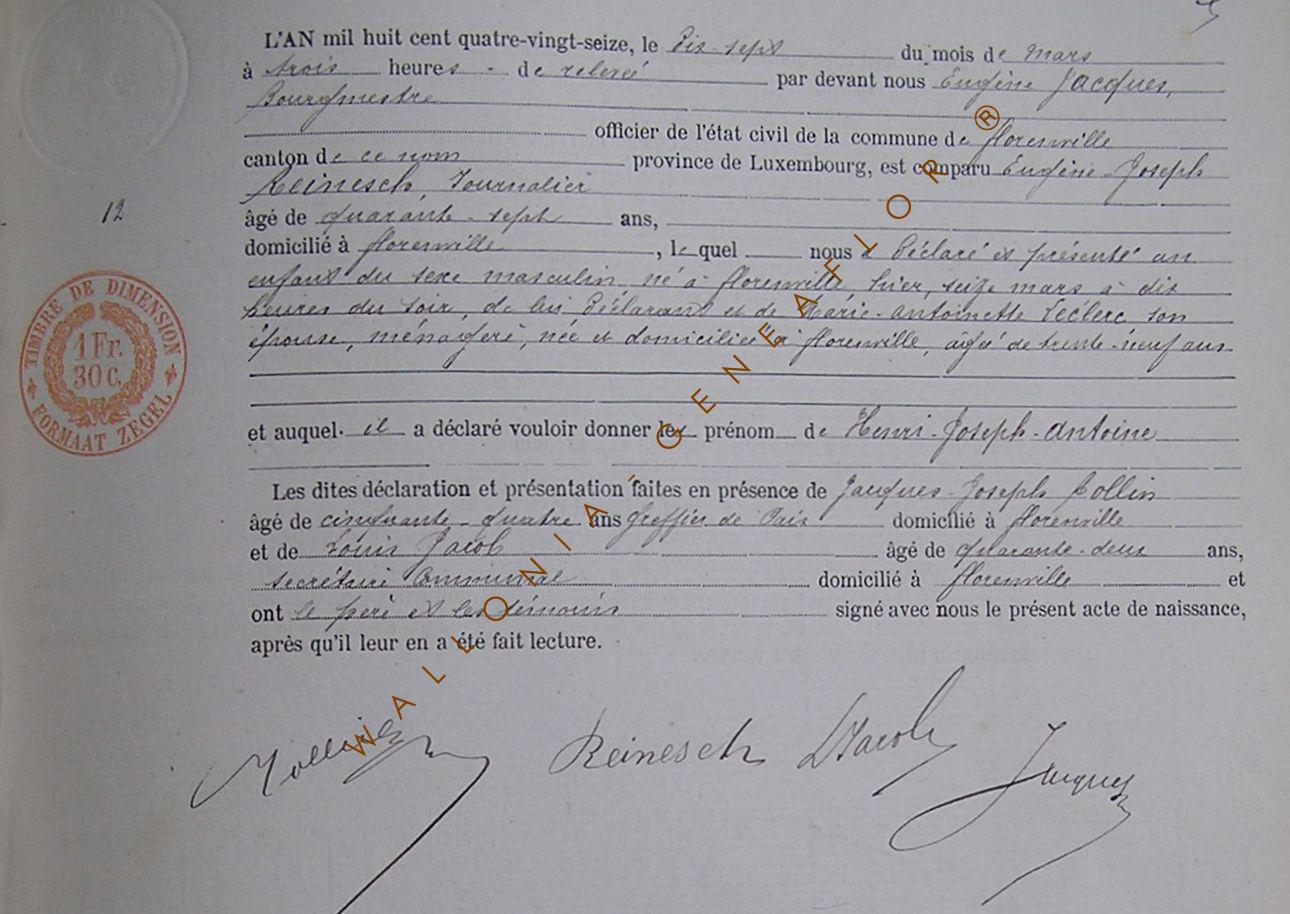 L'AN mil huit cent quatre-vingt-seize, le Dix-sept du mois de mars
à trois heures de relevé par devant nous Eugène Jacques,
Bourgmestre
officier de l'état civil de la commune de florenville
canton de ce nom province de Luxembourg, est comparu Eugène-Joseph
Reinesch Journalier
12
âgé de quarante-sept ans,
domicilié à florenville, lequel nous a Déclaré et présenté un
enfant du sexe masculin, né à florenville, hier, seize mars à dix
heures du soir, de lui Déclarant et de Marie-Antoinette Léclerc son
épouse, ménagère, née et domiciliée à florenville, âgée de trente-neuf ans
TIMBRE DE DIMENSION
1 Fr.
30 C.
FORMAAT ZEGEL
et auquel il a déclaré vouloir donner les prénom de Henri-Joseph-Antoine
Les dites déclaration et présentation faites en présence de Jacques-Joseph Collin
âgé de cinquante-quatre ans Greffier de Paix domicilié à florenville
et de Louis Jacob âgé de quarante-deux ans,
secrétaire Communal domicilié à florenville et
ont le père et les témoins signé avec nous le présent acte de naissance,
après qu'il leur en a été fait lecture.
Reinesch LJacob Jacques
WALLONIA'GENEAFLOR®